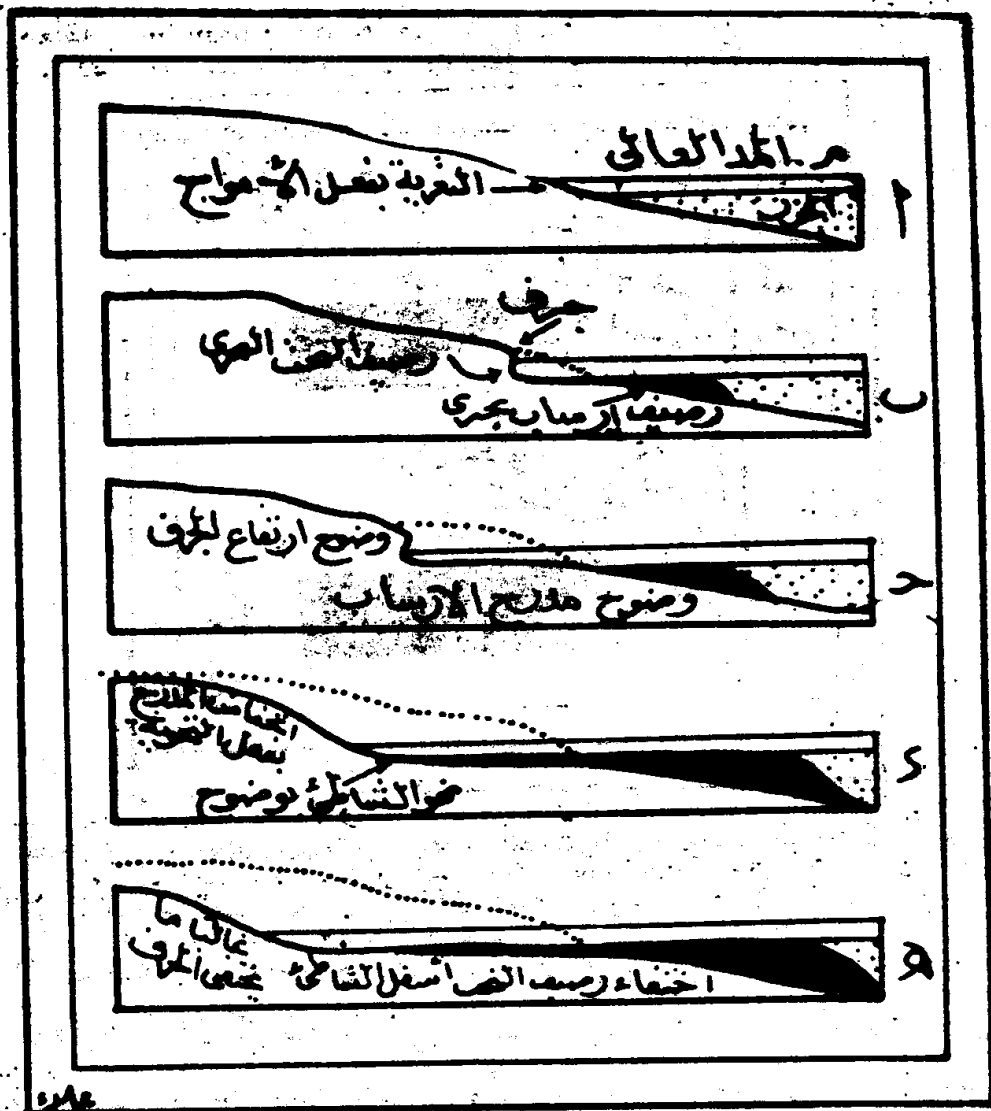 م. المد العالى
التعرية بفعل الأمواج
الجزر
أ
جرف
رصيف النحت البحرى
رصيف إرساب بحرى
ب
وضوح ارتفاع الجرف
وضوح مدرج الإرساب
ج
انخفاض المدرج
بفعل التعرية
نمو الشاطئ بوضوح
د
غالبا ما
يختفى الجرف
اختفاء رصيف النحر أسفل الشاطئ
هـ